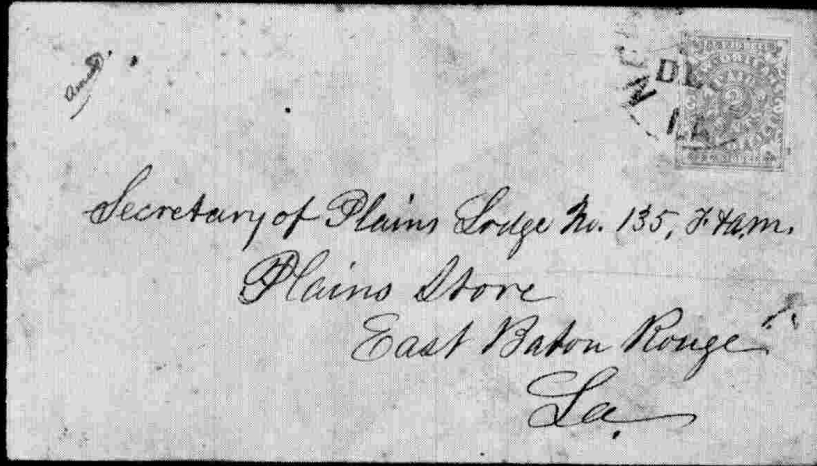 Secretary of Plains Lodge No. 135, F&A.M.
Plains Store
East Baton Rouge
La.
DE
LA
2